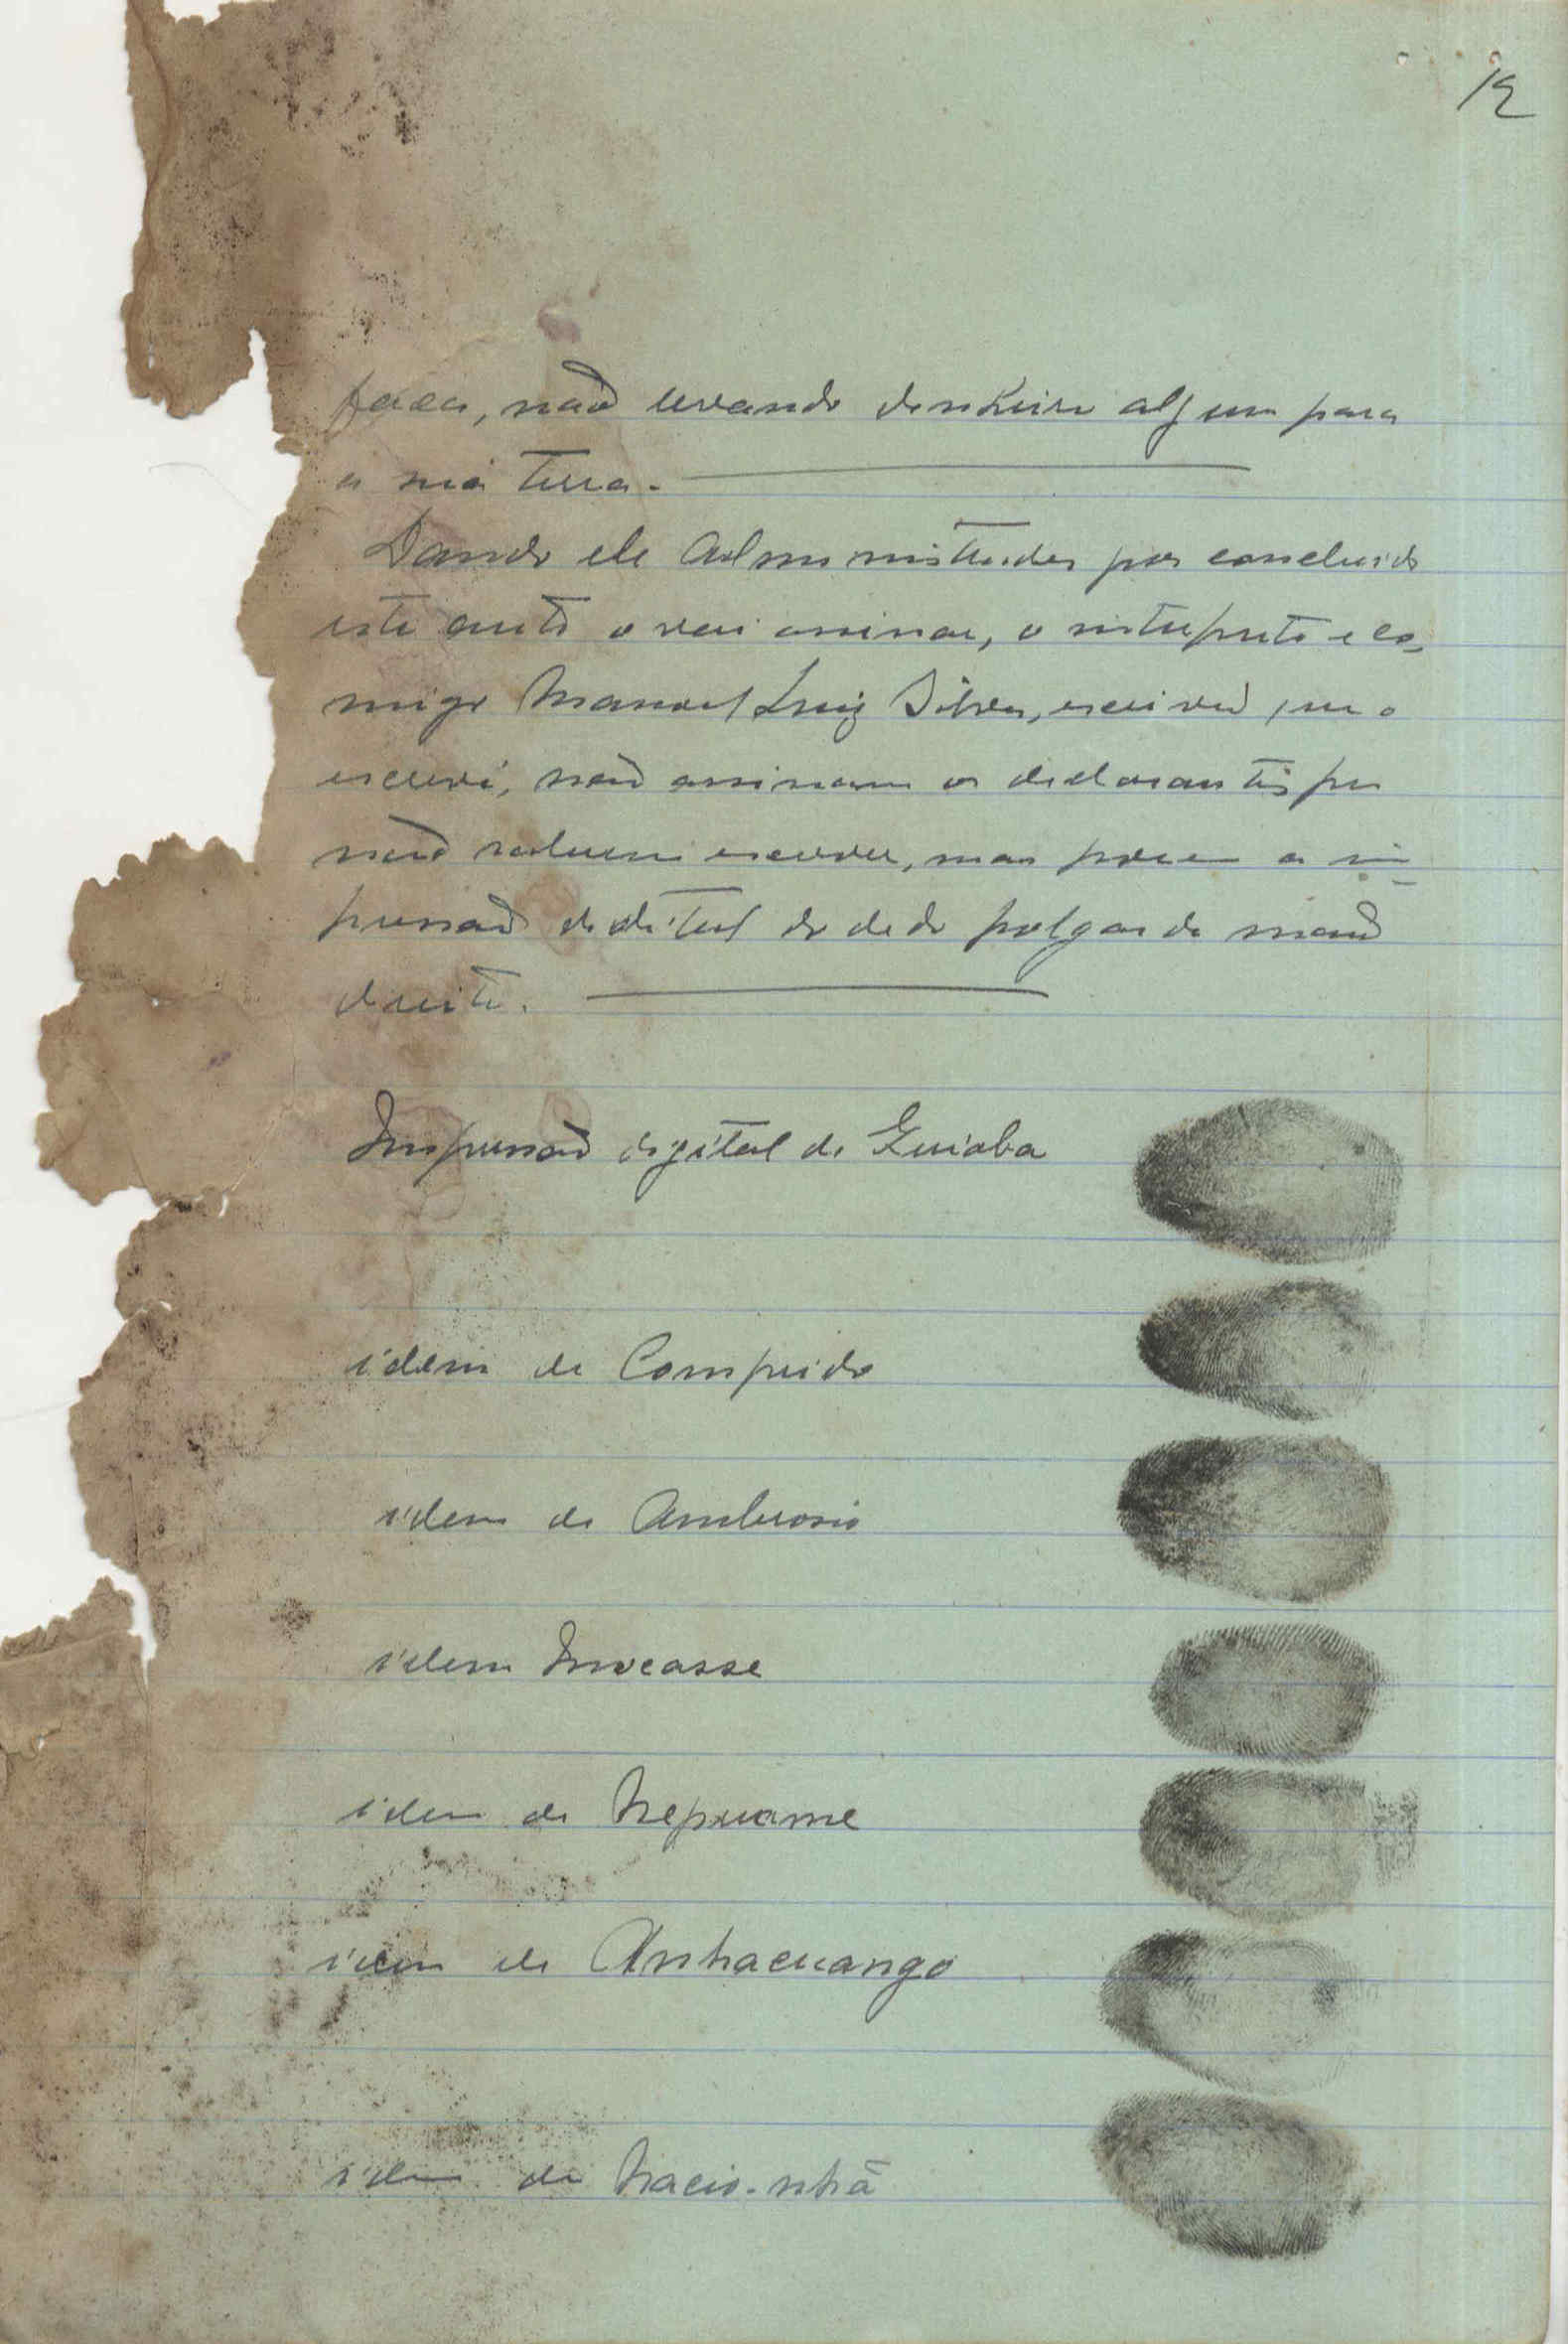 12
faca, não levando dinheiro algum para
a sua terra.
Dando ele Administrador por concluido
este auto o vai assinar, o interprete e co-
migo Manuel Luiz Silva, escrivão, que o
escrevi, não assinam os declarantes por
não saberem escrever, mas põem a im-
pressão dedital do dedo polgar da mão
direita.
Impressão digital de Guiaba
idem de Comprido
idem de Ambrosio
idem Inocasse
idem de Nepuame
idem de Anhacuango
idem de Nacio-nhã